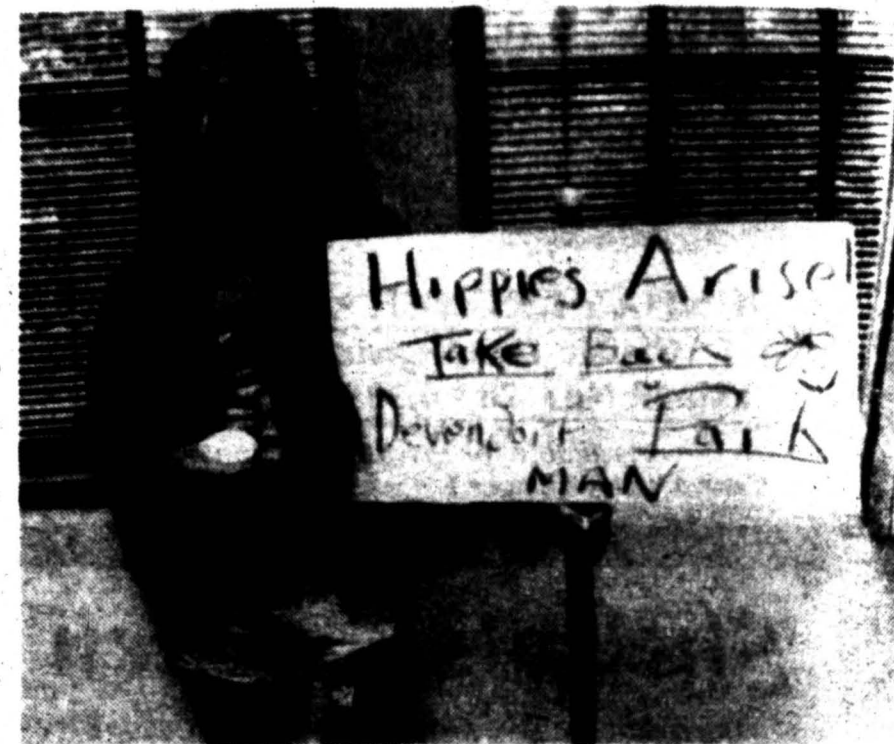 Hippies Arise!
Take Back
Devondorf Park
MAN